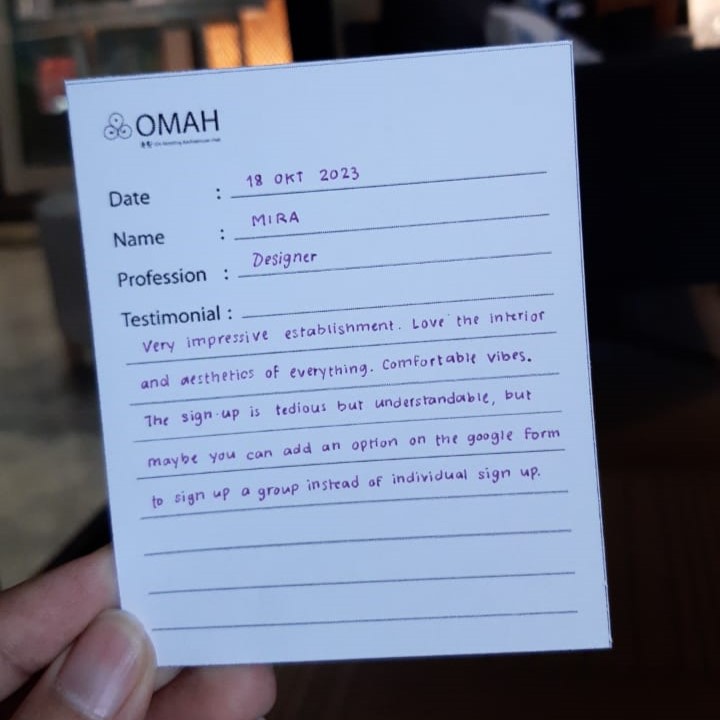 OMAH
Date : 18 OKT 2023
Name : MIRA
Profession : Designer
Testimonial :
Very impressive establishment. Love the interior
and aesthetics of everything. Comfortable vibes.
The sign-up is tedious but understandable, but
maybe you can add an option on the google form
to sign up a group instead of individual sign up.